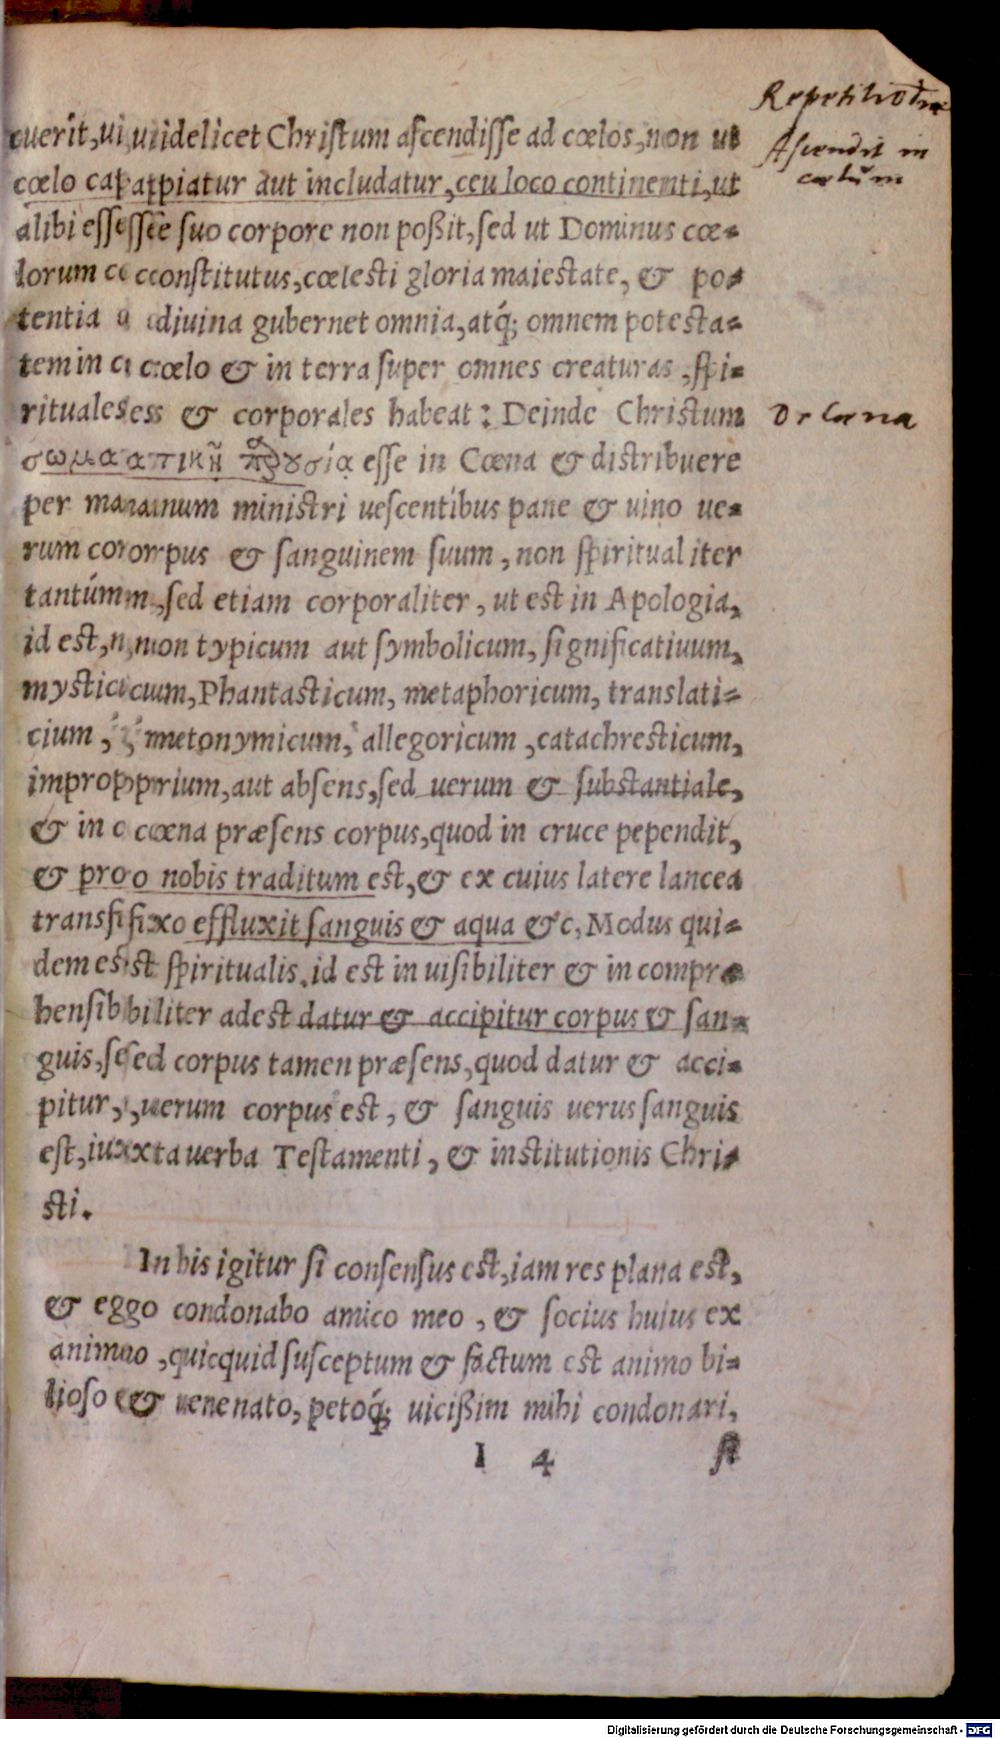 euerit, uidelicet Christum ascendisse ad cœlos, non ut
cœlo capiatur aut includatur, ceu loco continenti, ut
alibi esse suo corpore non poßit, sed ut Dominus cœ-
lorum constitutus, cœlesti gloria maiestate, & po-
tentia diuina gubernet omnia, atq; omnem potesta-
tem in cœlo & in terra super omnes creaturas, spi-
rituales & corporales habeat: Deinde Christum
σωματικῇ παρουσίᾳ esse in Cœna & distribuere
per manum ministri uescentibus pane & uino ue-
rum corpus & sanguinem suum, non spiritualiter
tantúm, sed etiam corporaliter, ut est in Apologia,
id est, non typicum aut symbolicum, significatiuum,
mysticum, Phantasticum, metaphoricum, translati-
cium, metonymicum, allegoricum, catachresticum,
improprium, aut absens, sed uerum & substantiale,
& in cœna præsens corpus, quod in cruce pependit,
& pro nobis traditum est, & ex cuius latere lancea
transfixo effluxit sanguis & aqua &c. Modus qui-
dem est spiritualis, id est inuisibiliter & incompræ-
hensibiliter adest datur & accipitur corpus & san-
guis, sed corpus tamen præsens, quod datur & acci-
pitur, uerum corpus est, & sanguis uerus sanguis
est, iuxta uerba Testamenti, & institutionis Chri-
sti.
In his igitur si consensus est, iam res plana est,
& ego condonabo amico meo, & socius huius ex
animo, quicquid susceptum & factum est animo bi-
lioso & uenenato, petoq; uicißim mihi condonari,
I 4
si
Ascendit in
cœlum
De Cœna
Digitalisierung gefördert durch die Deutsche Forschungsgemeinschaft - DFG